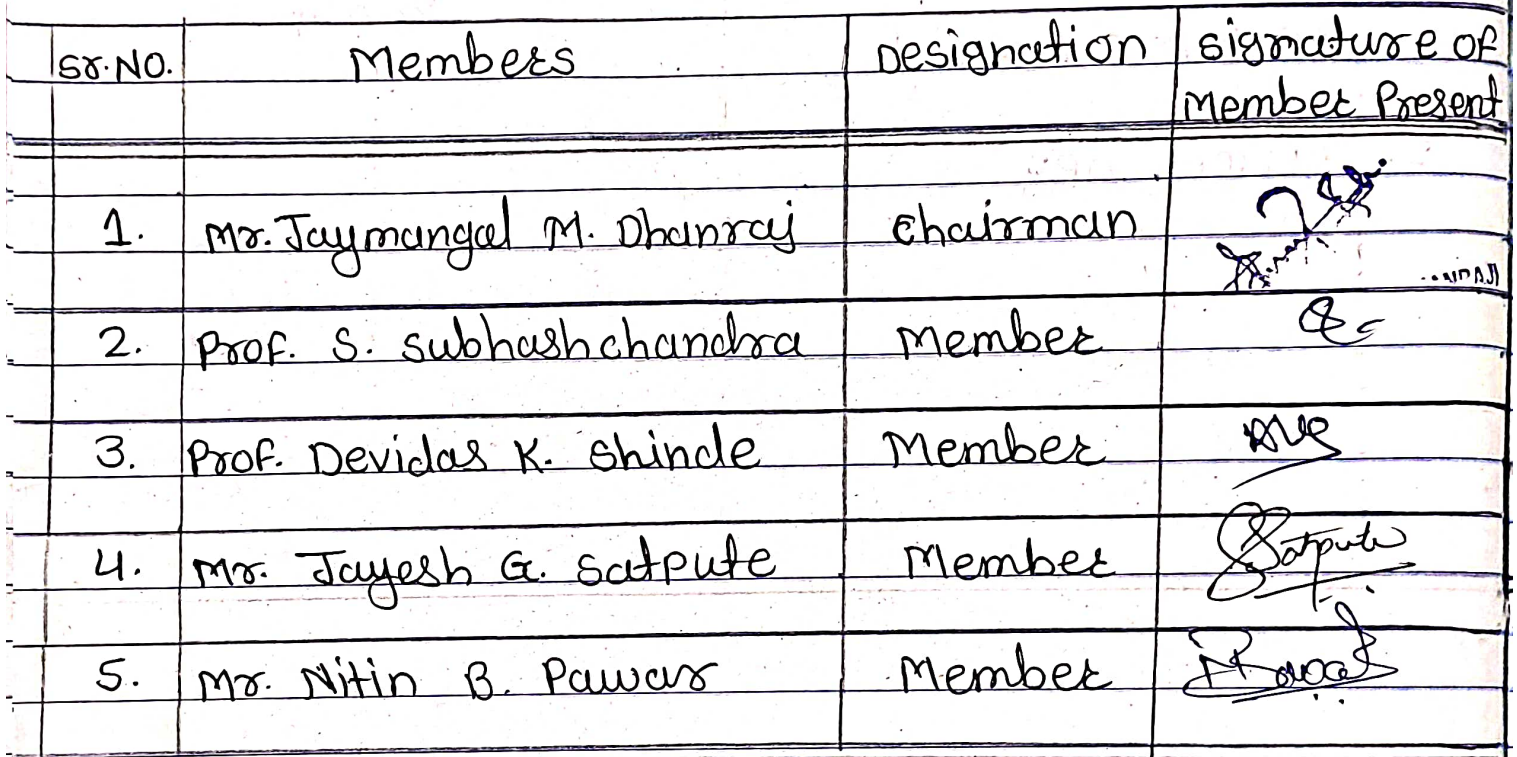 Sr.No. Members Designation signature of
Member Present
1. Mr. Jaymangal M. Dhanraj Chairman
2. Prof. S. Subhashchandra Member
3. Prof. Devidas K. Shinde Member
4. Mr. Jayesh G. Satpute Member Satpute
5. Mr. Nitin B. Pawar Member